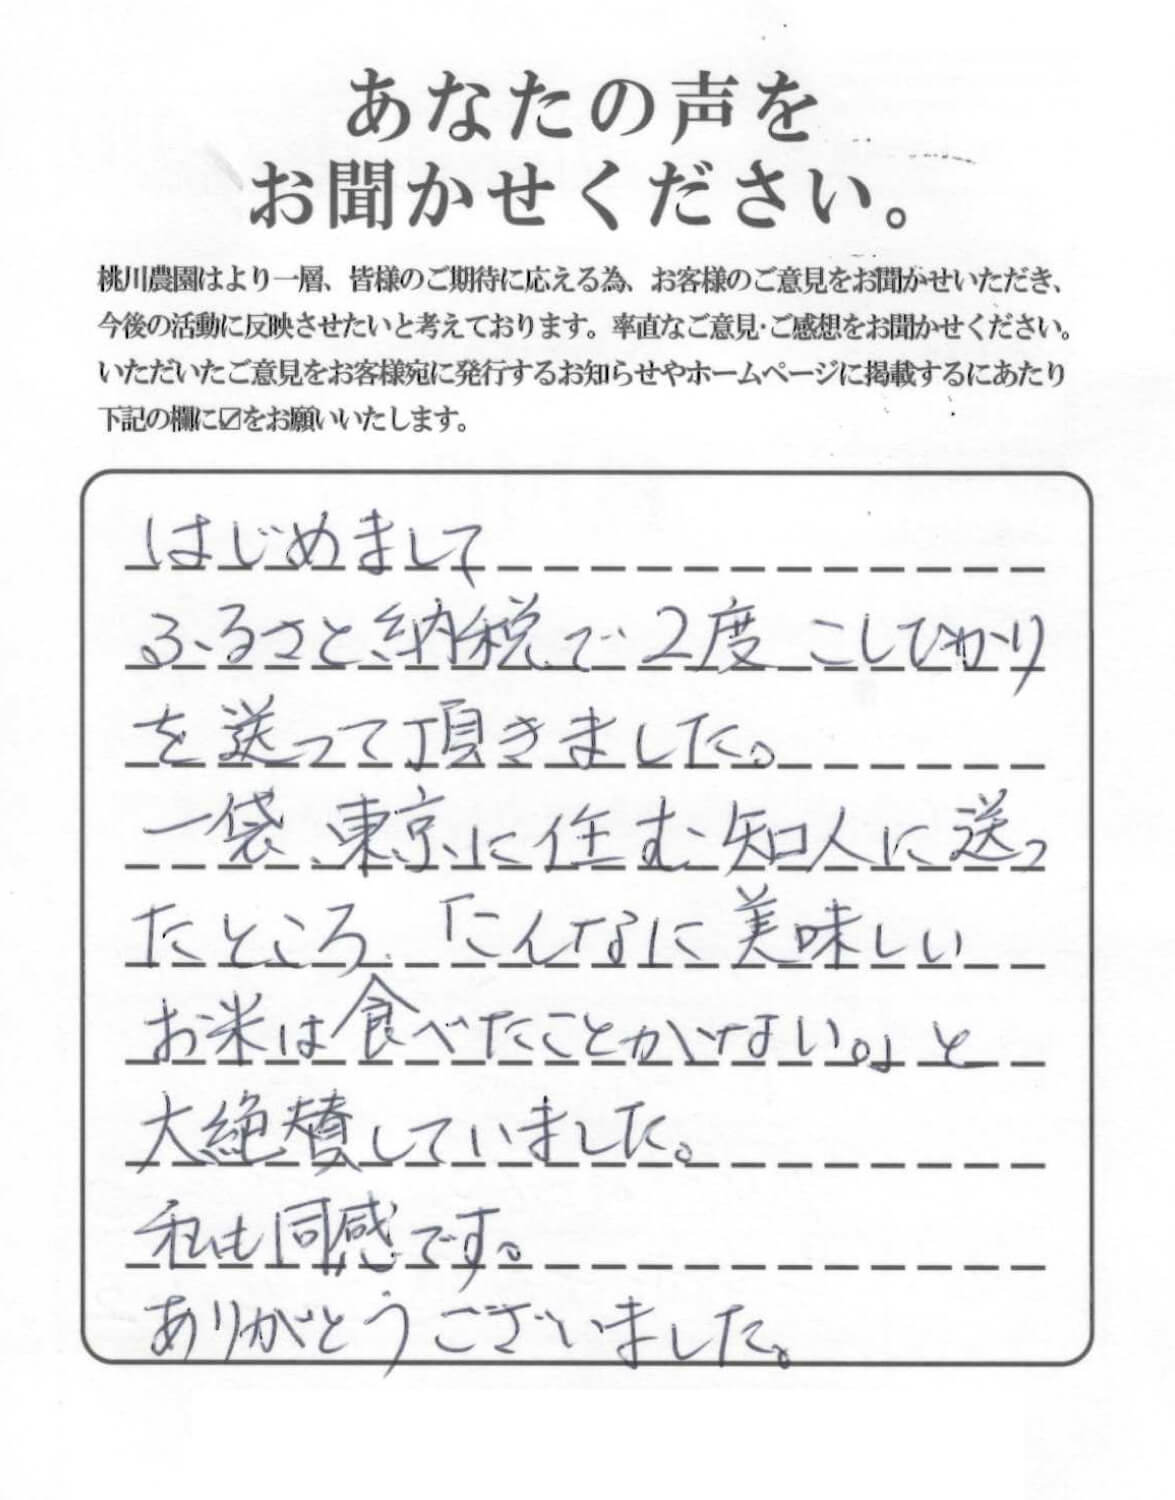 あなたの声を
お聞かせください。
桃川農園はより一層、皆様のご期待に応える為、お客様のご意見をお聞かせいただき、
今後の活動に反映させたいと考えております。率直なご意見・ご感想をお聞かせください。
いただいたご意見をお客様宛に発行するお知らせやホームページに掲載するにあたり
下記の欄に☑をお願いいたします。
はじめまして
ふるさと納税で2度こしひかり
を送って頂きました。
一袋、東京に住む知人に送っ
たところ、「こんなに美味しい
お米は食べたことがない。」と
大絶賛していました。
私も同感です。
ありがとうございました。